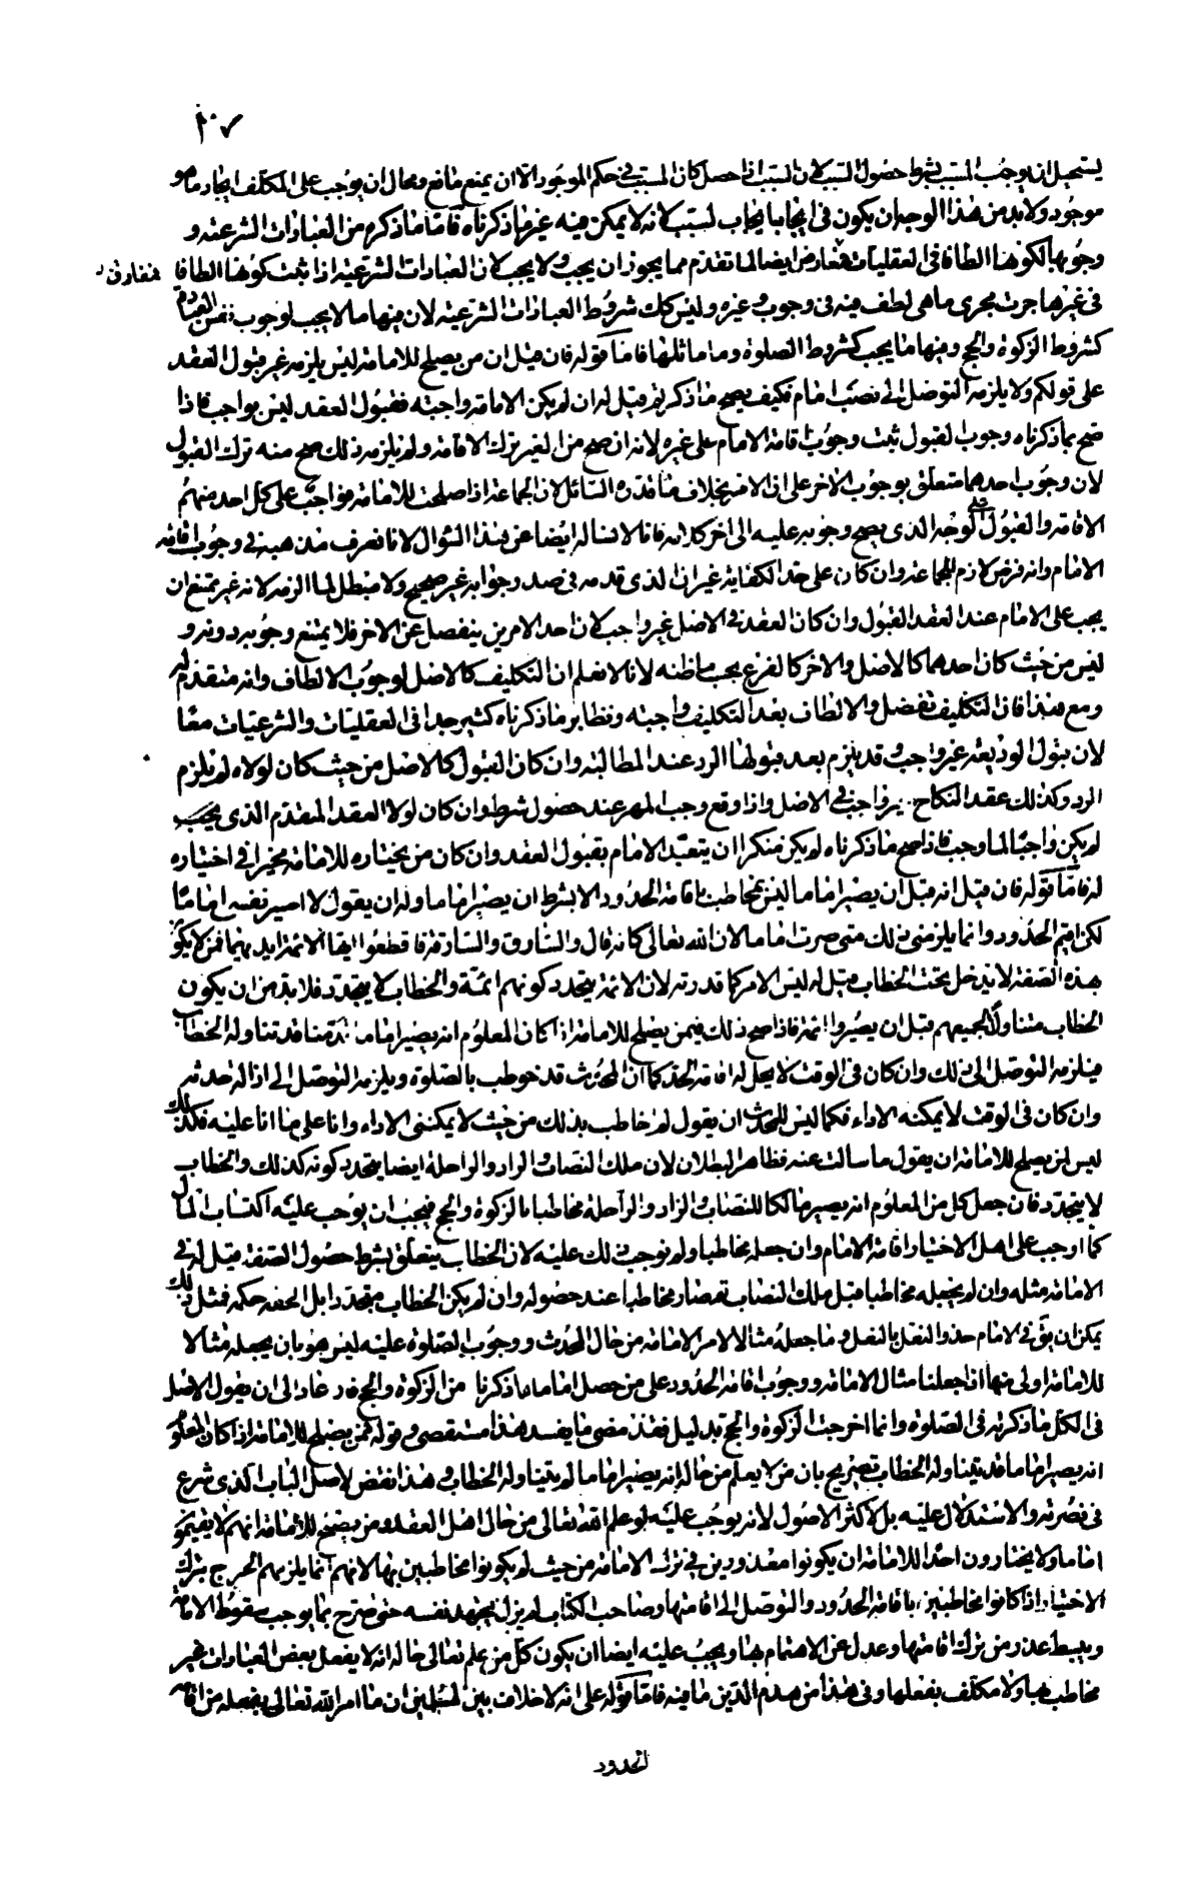 ١٠٧
يستحيل ان يوجب المسبب بشرط حصول السبب لان السبب اذا حصل كان المسبب في حكم الموجود الا ان يمنع مانع ومحال ان يوجب على المكلف ايجاد ما هو
موجود ولابد من هذا الوجه ان يكون في ايجابه ايجاب لسببه لانه لا يمكن فيه غير ما ذكرناه فاما ما ذكره من العبادات الشرعية و
وجوبها لكونها الطافا في العقليات فمفارق ايضا لما تقدم مما يجوز ان يجب ولا يجب لان العبادات الشرعية اذا ثبت كونها الطافا
فمفارق
في غيرها جرت مجرى ما هي لطف فيه في وجوب وغيره وليس كك شروط العبادات الشرعية لان منها ما لا يجب لوجوب نفس العبادة
كشروط الزكوة والحج ومنها ما يجب كشروط الصلوة وما ماثلها فاما قوله فان قيل ان من يصلح للامامة ليس يلزمه غير قبول العقد
على قولكم ولا يلزمه التوصل الى نصب امام فكيف يصح ما ذكرتم قيل له ان لم يكن الامامة واجبة فقبول العقد ليس بواجب فاذا
صح بما ذكرناه وجوب القبول ثبت وجوب اقامة الامام على غيره لانه ان صح من الغير ترك الاقامة ولم يلزمه ذلك صح منه ترك القبول
لان وجوب احدهما متعلق بوجوب الاخر على ان الامر بخلاف ما قدره السائل لان الجماعة اذا صلحت للامامة فواجب على كل احد منهم
الاقامة والقبول على الوجه الذي يصح وجوبه عليه الى اخر كلامه فانا لا نسأله ايضا عن هذا السؤال لانا نعرف مذهبه في وجوب اقامة
الامام وانه فرض لازم للجماعة وان كان على حد الكفاية غير ان الذي قدمه في صدر جوابه غير صحيح ولا مبطل لما الزمه لانه غير ممتنع ان
يجب على الامام عند العقد القبول وان كان العقد في الاصل غير واجب لان احد الامرين ينفصل عن الاخر فلا يمتنع وجوبه دونه و
ليس من حيث كان احدهما كالاصل والاخر كالفرع يجب ما ظنه لانا نعلم ان التكليف كالاصل لوجوب الالطاف وانه متقدم له
ومع هذا فان التكليف تفضل والالطاف بعد التكليف واجبة ونظاير ما ذكرناه كثير جدا في العقليات والشرعيات معا
لان قبول الوديعة غير واجب وقد يلزم بعد قبولها الرد عند المطالبة وان كان القبول كالاصل من حيث كان لولاه لم يلزم
الرد وكذلك عقد النكاح غير واجب في الاصل واذا وقع وجب المهر عند حصول شرطه وان كان لولا العقد المتقدم الذي يجب
لم يكن واجبا لما وجب فاذا صح ما ذكرناه لم يكن منكرا ان يتعبد الامام بقبول العقد وان كان من يختاره للامامة مخيرا في اختياره
له فاما قوله فان قيل انه قبل ان يصير اماما ليس بمخاطب باقامة الحدود الا بشرط ان يصير اماما وله ان يقول لا اصير نفسي اماما
لكي اقيم الحدود وانما يلزمني ذلك متى صرت اماما لان الله تعالى كانه قال والسارق والسارقة فاقطعوا ايها الائمة ايديهما فمن لا يكون
بهذه الصفة لا يدخل تحت الخطاب قيل له ليس الامر كما قدرته لان الائمة يتجدد كونهم ائمة والخطاب لا يتجدد فلا بد من ان يكون
الخطاب متناولا لجميعهم قبل ان يصيروا ائمة فاذا صح ذلك فيمن يصلح للامامة اذا كان المعلوم انه يصير اماما قد تناوله الخطاب
فيلزمه التوصل الى ذلك وان كان في الوقت لا يحل له اقامة الحد كما ان المحدث قد خوطب بالصلوة ويلزمه التوصل الى ازالة حدثه
وان كان في الوقت لا يمكنه الاداء فكما ليس للمحدث ان يقول لم اخاطب بذلك من حيث لا يمكنني الاداء وانا على ما انا عليه فكذلك
ليس لمن يصلح للامامة ان يقول ما سالت عنه فظاهر البطلان لان ملك النصاب والزاد والراحلة ايضا يتجدد كونه كذلك والخطاب
لا يتجدد فان جعل كل من المعلوم انه يصير مالكا للنصاب والزاد والراحلة مخاطبا بالزكوة والحج فيجب ان يوجب عليه اكتساب المال
كما اوجب على اهل الاختيار اقامة الامام وان جعله مخاطبا ولم يوجب ذلك عليه لان الخطاب يتعلق بشرط حصول الصفة قيل له في
الامامة مثله وان لم يجعله مخاطبا قبل ملك النصاب فصار مخاطبا عند حصوله وان لم يكن الخطاب متجددا بل الحقه حكمه فمثل ذلك
يمكن ان يق في الامام حذو النعل بالنعل وما جعله مثالا لامر الامامة من حال المحدث ووجوب الصلوة عليه ليس هو بان يجعله مثالا
للامامة اولى منها اذا جعلنا مثال الامامة ووجوب اقامة الحدود على من حصل اماما ما ذكرنا من الزكوة والحج فان عاد الى ان يقول الاصل
في الكل ما ذكرته في الصلوة وانما اخرجت الزكوة والحج بدليل فقد مضى ما يفسد هذا مستقصى وقوله فمن يصلح للامامة اذا كان المعلوم
انه يصير اماما قد يتناوله الخطاب تصريح بان من لا يعلم من حاله انه يصير اماما لم يتناوله الخطاب وهذا نقض لاصل الباب الذي شرع
في نصرته والاستدلال عليه بل لاكثر الاصول لانه يوجب عليه لو علم الله تعالى من حال اهل العقد ومن يصلح للامامة انهم لا يقيمون
اماما ولا يختارون احدا للامامة ان يكونوا معذورين في ترك الامامة من حيث لم يكونوا مخاطبين بها لانهم انما يلزمهم الحرج بترك
الاختيار اذا كانوا مخاطبين باقامة الحدود والتوصل الى اقامتها وصاحب الكتاب لم يزل يجهد نفسه حتى صرح بما يوجب سقوط الامامة
ويبسط عذر من ترك اقامتها وعدل عن الاهتمام بها ويجب عليه ايضا ان يكون كل من علم تعالى حاله انه لا يفعل بعض العبادات غير
مخاطب بها ولا مكلف بفعلها وفي هذا من هدم الدين ما فيه فاما قوله على انه لا خلاف بين المسلمين ان ما امر الله تعالى بفعله من اقامة
الحدود